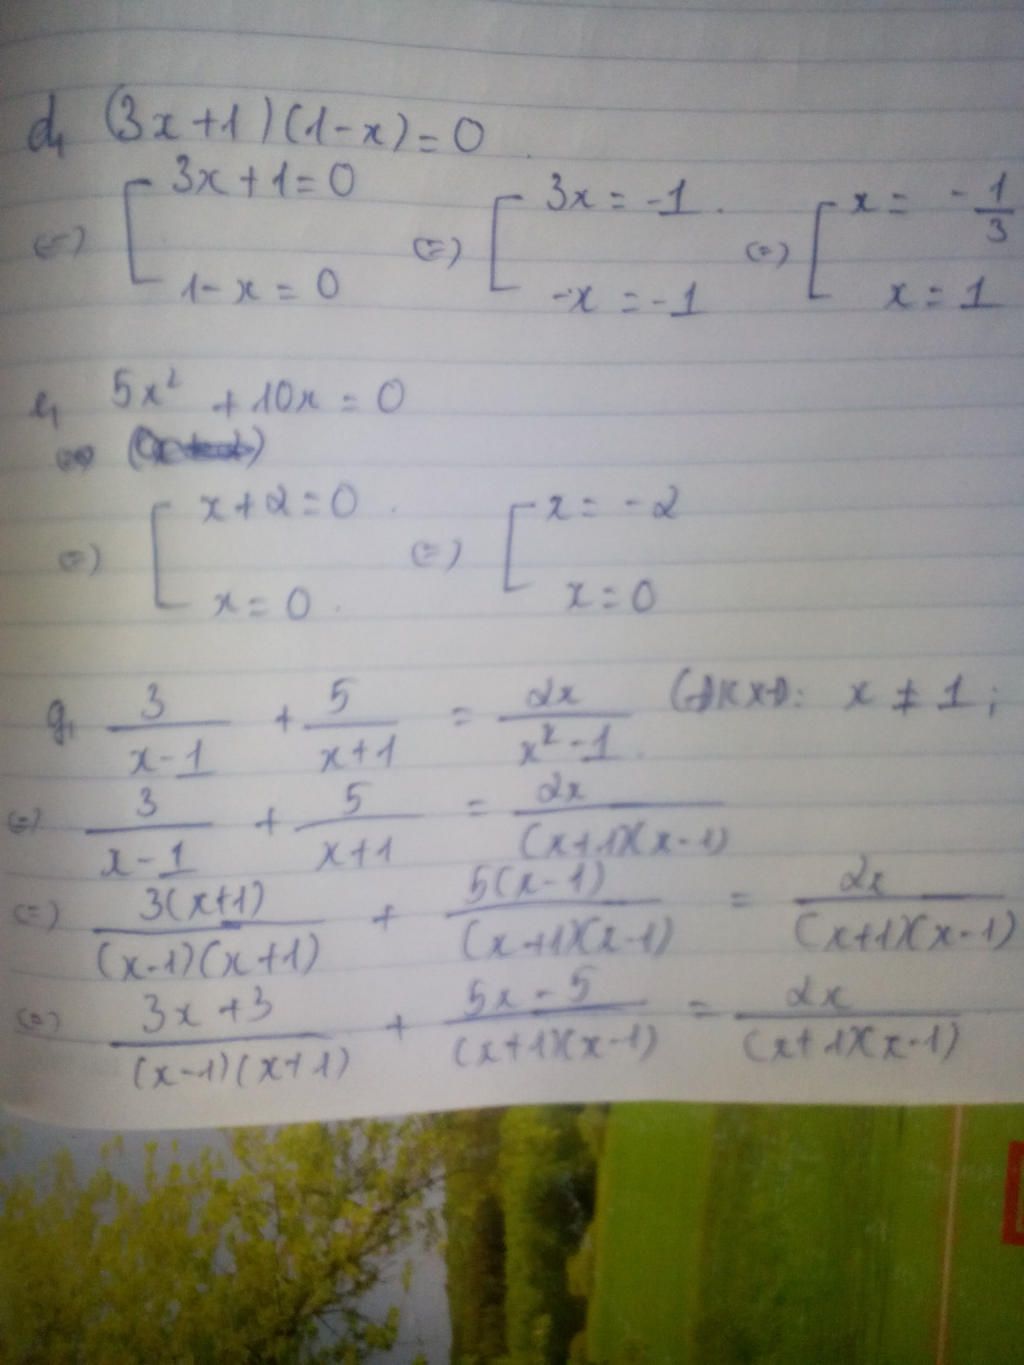 d, (3x+1)(1-x)=0
(=) [ 3x+1=0 (=) [ 3x = -1. (=) [ x = -1/3
1-x=0 -x = -1 x = 1
e, 5x² + 10x = 0
(=) [ x+2=0 (=) [ x = -2
x=0. x=0
g, 3/(x-1) + 5/(x+1) = 2x/(x²-1) (ĐKXĐ: x ≠ 1;
(=) 3/(x-1) + 5/(x+1) = 2x/(x+1)(x-1)
(=) 3(x+1)/(x-1)(x+1) + 5(x-1)/(x+1)(x-1) = 2x/(x+1)(x-1)
(=) 3x+3/(x-1)(x+1) + 5x-5/(x+1)(x-1) = 2x/(x+1)(x-1)